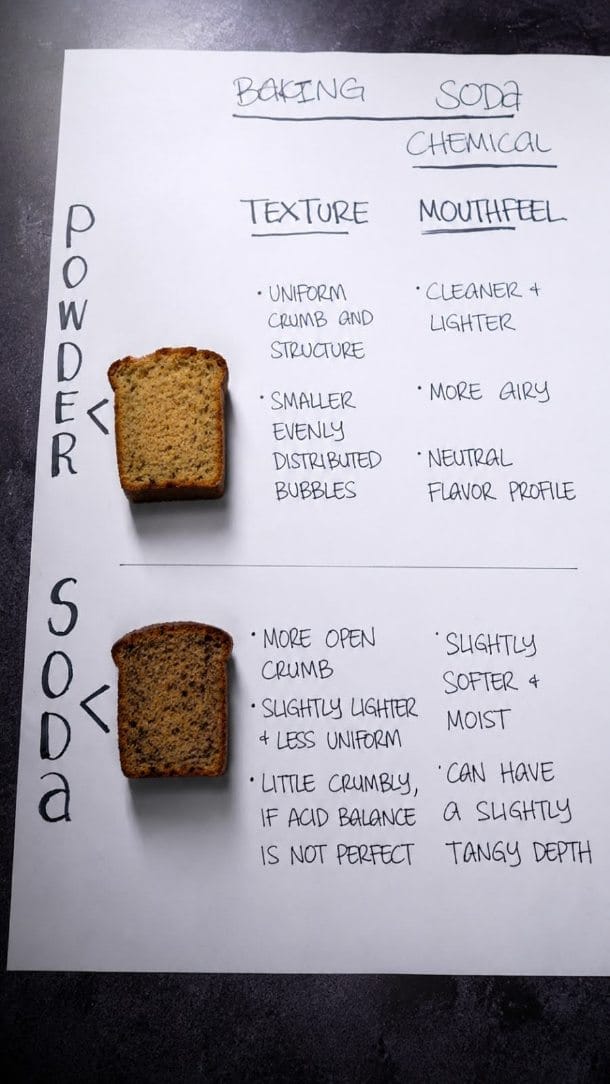 BAKING SODA
CHEMICAL
TEXTURE MOUTHFEEL
POWDER <
• UNIFORM
CRUMB AND
STRUCTURE
• SMALLER
EVENLY
DISTRIBUTED
BUBBLES
• CLEANER +
LIGHTER
• MORE AIRY
• NEUTRAL
FLAVOR PROFILE
SODA <
• MORE OPEN
CRUMB
• SLIGHTLY LIGHTER
+ LESS UNIFORM
• LITTLE CRUMBLY,
IF ACID BALANCE
IS NOT PERFECT
• SLIGHTLY
SOFTER +
MOIST
• CAN HAVE
A SLIGHTLY
TANGY DEPTH